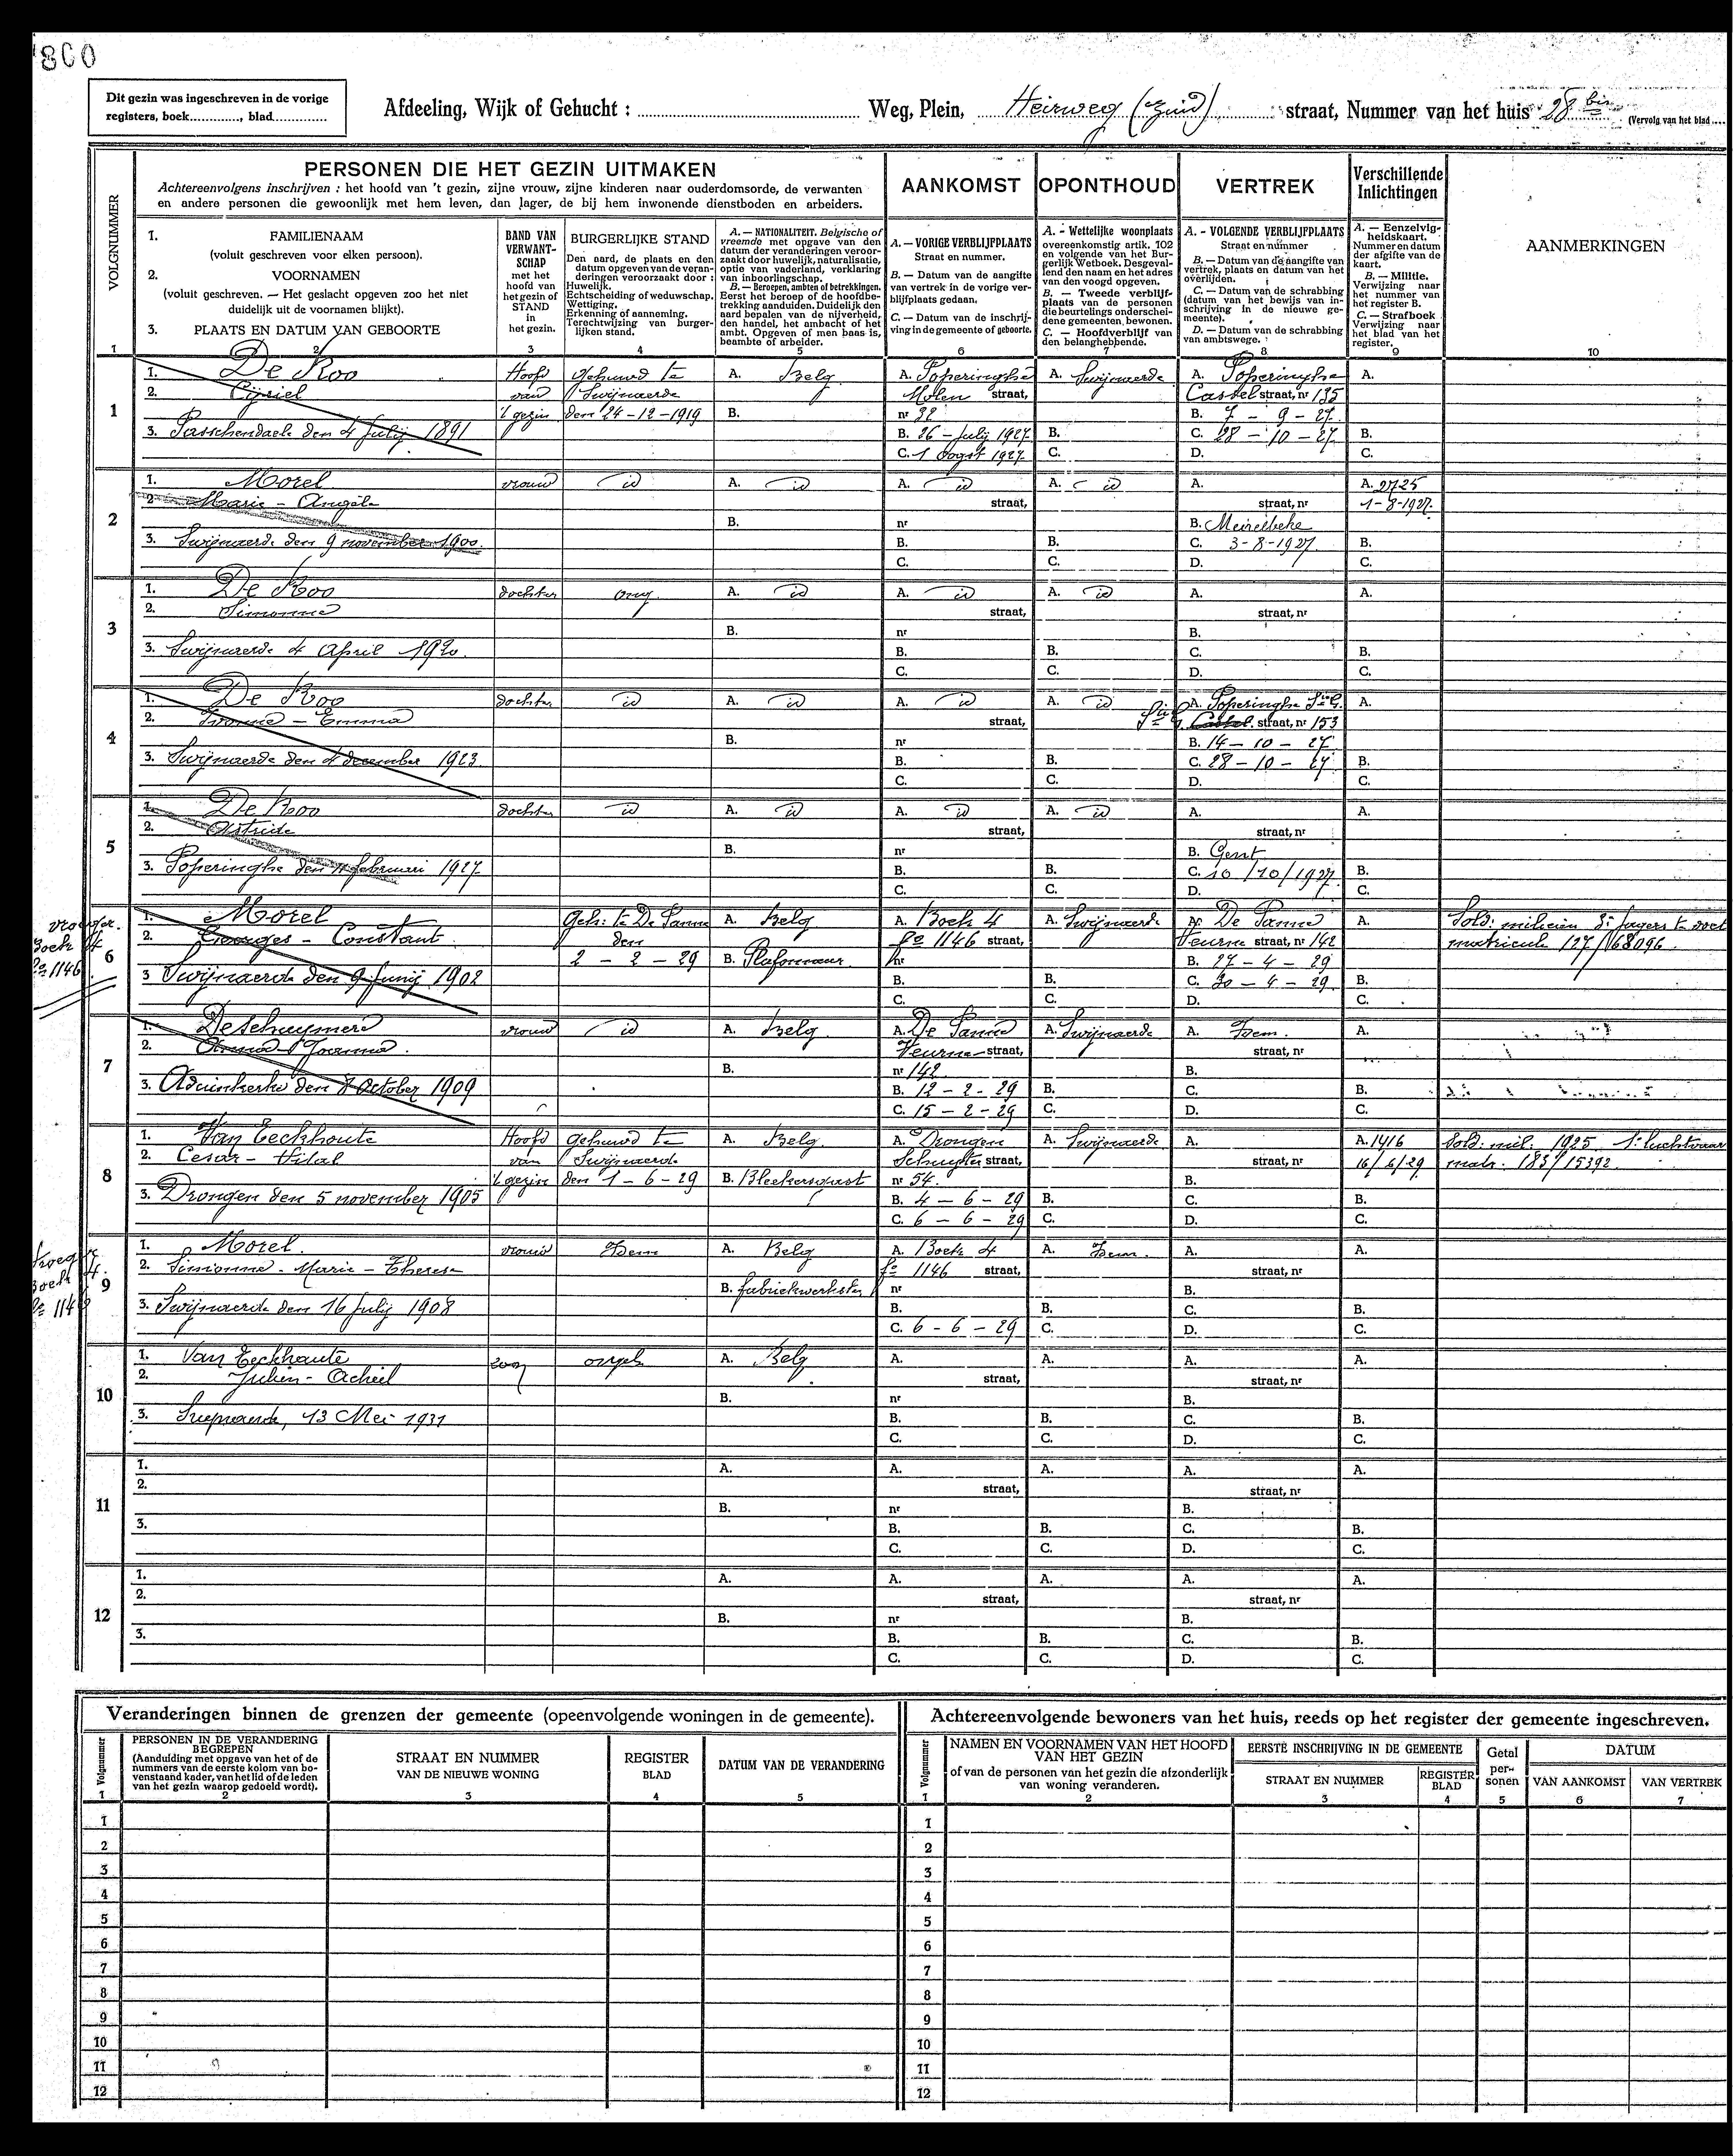 800
Dit gezin was ingeschreven in de vorige
registers, boek............, blad.............
Afdeeling, Wijk of Gehucht : Weg, Plein, Heirweg (Zuid) straat, Nummer van het huis 28 bis (Vervolg van het blad ....
VOLGNUMMER
PERSONEN DIE HET GEZIN UITMAKEN
Achtereenvolgens inschrijven : het hoofd van 't gezin, zijne vrouw, zijne kinderen naar ouderdomsorde, de verwanten
en andere personen die gewoonlijk met hem leven, dan lager, de bij hem inwonende dienstboden en arbeiders.
1. FAMILIENAAM
(voluit geschreven voor elken persoon).
2. VOORNAMEN
(voluit geschreven. — Het geslacht opgeven zoo het niet
duidelijk uit de voornamen blijkt).
3. PLAATS EN DATUM VAN GEBOORTE
BAND VAN
VERWANT-
SCHAP
met het
hoofd van
het gezin of
STAND
in
het gezin.
BURGERLIJKE STAND
Den aard, de plaats en den
datum opgeven van de veran-
deringen veroorzaakt door :
Huwelijk.
Echtscheiding of weduwschap.
Wettiging.
Erkenning of anneming.
Terechtwijzing van burger-
lijken stand.
A. — NATIONALITEIT. Belgische of
vreemde met opgave van den
datum der veranderingen veroor-
zaakt door huwelijk, naturalisatie,
optie van vaderland, verklaring
van inboorlingschap.
B. — Beroepen, ambten of betrekkingen.
Eerst het beroep of de hoofdbe-
trekking aanduiden. Duidelijk den
aard bepalen van de nijverheid,
den handel, het ambacht of het
ambt. Opgeven of men baas is,
beambte of arbeider.
AANKOMST
A. — VORIGE VERBLIJFPLAATS
Straat en nummer.
B. — Datum van de aangifte
van vertrek in de vorige ver-
blijfplaats gedaan.
C. — Datum van de inschrij-
ving in de gemeente of geboorte.
OPONTHOUD
A. - Wettelijke woonplaats
overeenkomstig artik. 102
en volgende van het Bur-
gerlijk Wetboek. Desgeval-
lend den naam en het adres
van den voogd opgeven.
B. — Tweede verblijf-
plaats van de personen
die beurtelings onderschei-
dene gemeenten, bewonen.
C. — Hoofdverblijf van
den belanghebbende.
VERTREK
A. - VOLGENDE VERBLIJFPLAATS
Straat en nummer
B. — Datum van de aangifte van
vertrek, plaats en datum van het
overlijden.
C. — Datum van de schrabbing
(datum van het bewijs van in-
schrijving in de nieuwe ge-
meente).
D. — Datum van de schrabbing
van ambtswege.
Verschillende
Inlichtingen
A. — Eenzelvig-
heidskaart.
Nummer en datum
der afgifte van de
kaart.
B. — Militie.
Verwijzing naar
het nummer van
het register B.
C. — Strafboek
Verwijzing naar
het blad van het
register.
AANMERKINGEN
1 2 3 4 5 6 7 8 9 10
1
1. De Roo Hoofd gehuwd te A. Belg A. Poperinghe A. Swijnaerde A. Poperinghe A.
2. Cijriel van Swijnaerde Molen straat, Castel straat, nr 135
't gezin den 24-12-1919 B. nr 32 B. 7 - 9 - 27
3. Passchendaele den 4 Julij 1891 B. 26 - Julij 1927 B. C. 28 - 10 - 27 B.
C. 1 Oogst 1927 C. D. C.
2
1. Morel vrouw id A. id A. id A. id A. A. 2725
2. Marie - Angèle straat, straat, nr 1-8-1927.
B. nr B. Meirelbeke
3. Swijnaerde den 9 november 1900. B. B. C. 3-8-1927 B.
C. C. D. C.
3
1. De Roo dochter ong A. id A. id A. id A. A.
2. Simonne straat, straat, nr
B. nr B.
3. Swijnaerde 4 April 1920. B. B. C. B.
C. C. D. C.
4
1. De Roo dochter id A. id A. id A. id A. Poperinghe A.
2. Ivonne - Emma straat, Castel straat, nr 153
B. nr B. 14 - 10 - 27
3. Swijnaerde den 4 december 1923 B. B. C. 28 - 10 - 27 B.
C. C. D. C.
5
1. De Roo dochter id A. id A. id A. id A. A.
2. Astride straat, straat, nr
B. nr B. Gent
3. Poperinghe den februari 1927 B. B. C. 10/10/1927 B.
C. C. D. C.
vroeger
Boek 4
fo 1146
6
1. Morel Geh: te De Panne A. Belg A. Boek 4 A. Swijnaerde A. De Panne A. Sold: milicien 3e Jagers te voet
2. Georges - Constant den fo 1146 straat, Veurne straat, nr 142 matricule 127/68096.
2 - 2 - 29 B. Plafonneur nr B. 27 - 4 - 29
3 Swijnaerde den 9 Junij 1902 B. B. C. 30 - 4 - 29 B.
C. C. D. C.
7
1. Deschuymere vrouw id A. Belg A. De Panne A. Swijnaerde A. Idem. A.
2. Anna - Joanna. Veurne straat, straat, nr
B. nr 142 B.
3. Adinkerke den 8 October 1909 B. 12 - 2 - 29 B. C. B.
C. 15 - 2 - 29 C. D. C.
8
1. Van Eeckhoute Hoofd gehuwd te A. Belg A. Drongen A. Swijnaerde A. A. 1416 Sold: mil: 1925 1e luchtvaar
2. Cesar - Vital van Swijnaerde straat, straat, nr 16/6/29 matr. 183/15392
't gezin den 1 - 6 - 29 B. Bleekersgast nr 54. B.
3. Drongen den 5 november 1905 B. 4 - 6 - 29 B. C. B.
C. 6 - 6 - 29 C. D. C.
vroeger
Boek 4
fo 1146
9
1. Morel. vrouw Idem A. Belg A. Boek 4 A. Idem. A. A.
2. Simonne - Marie - Therese fo 1146 straat, straat, nr
B. fabriekwerkster nr B.
3. Swijnaerde den 16 Julij 1908 B. B. C. B.
C. 6 - 6 - 29 C. D. C.
10
1. Van Eeckhaute zoon ongeh A. Belg A. A. A. A.
2. Julien - Achiel straat, straat, nr
B. nr B.
3. Swijnaerde, 13 Mei 1931 B. B. C. B.
C. C. D. C.
11
1. A. A. A. A. A.
2. straat, straat, nr
B. nr B.
3. B. B. C. B.
C. C. D. C.
12
1. A. A. A. A. A.
2. straat, straat, nr
B. nr B.
3. B. B. C. B.
C. C. D. C.
Veranderingen binnen de grenzen der gemeente (opeenvolgende woningen in de gemeente).
Volgnummer
PERSONEN IN DE VERANDERING
BEGREPEN
(Aanduiding met opgave van het of de
nummers van de eerste kolom van bo-
venstaand kader, van het lid of de leden
van het gezin waarop gedoeld wordt).
STRAAT EN NUMMER
VAN DE NIEUWE WONING
REGISTER
BLAD
DATUM VAN DE VERANDERING
1 2 3 4 5
1
2
3
4
5
6
7
8
9
10
11
12
Achtereenvolgende bewoners van het huis, reeds op het register der gemeente ingeschreven.
Volgnummer
NAMEN EN VOORNAMEN VAN HET HOOFD
VAN HET GEZIN
of van de personen van het gezin die afzonderlijk
van woning veranderen.
EERSTE INSCHRIJVING IN DE GEMEENTE
STRAAT EN NUMMER
REGISTER
BLAD
Getal
per-
sonen
DATUM
VAN AANKOMST
VAN VERTREK
1 2 3 4 5 6 7
1
2
3
4
5
6
7
8
9
10
11
12